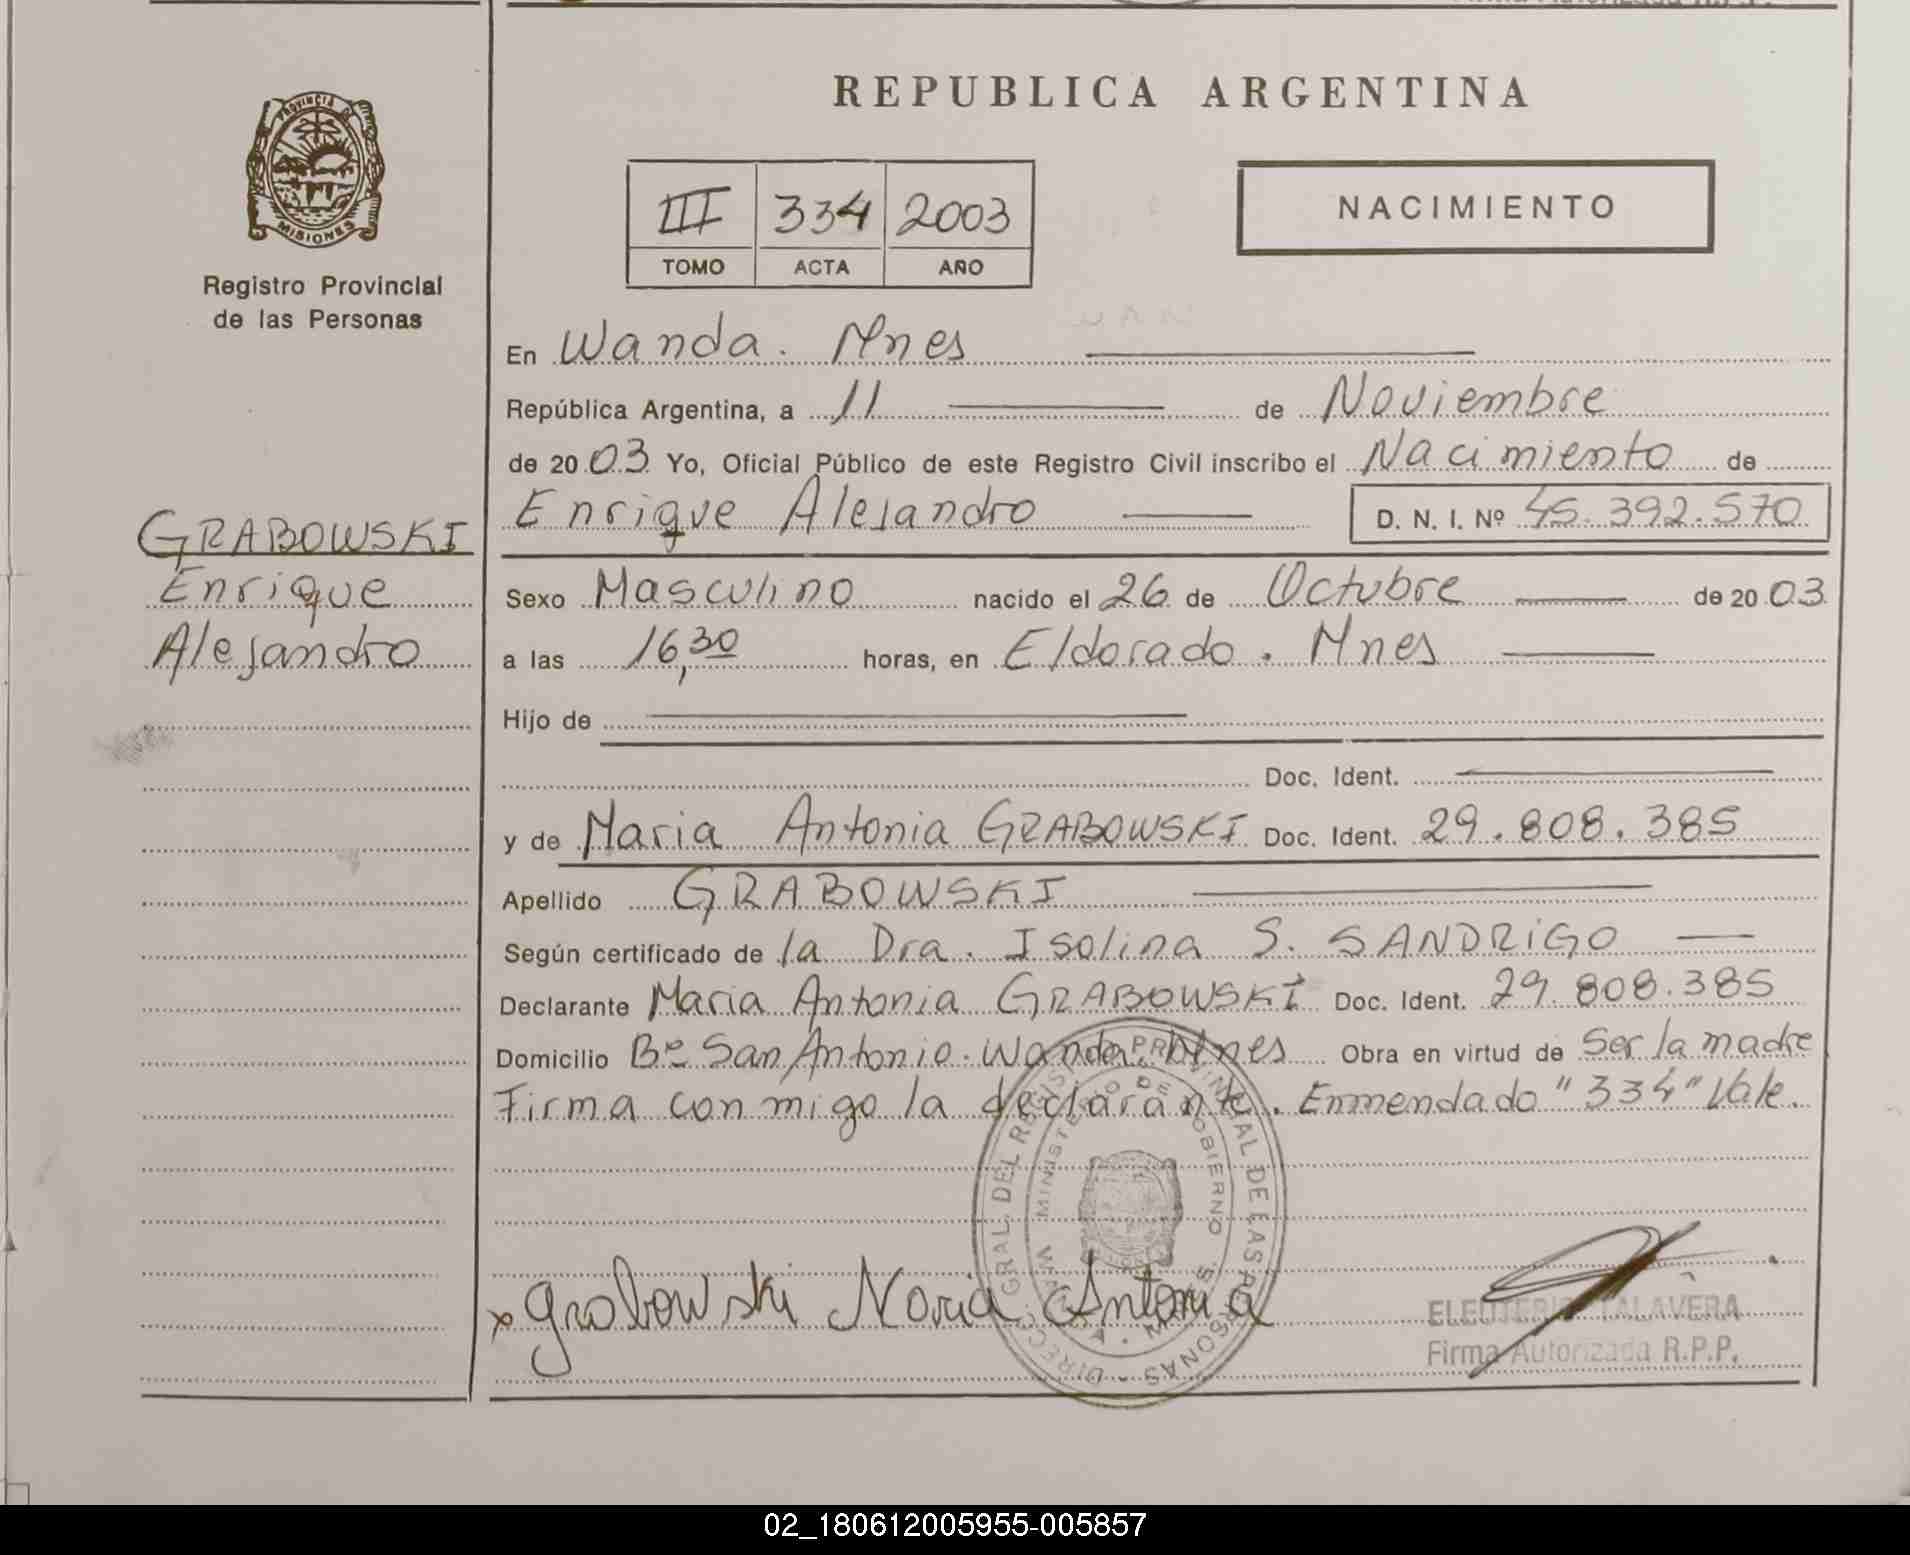 REPUBLICA ARGENTINA
PROVINCIA DE
MISIONES
Registro Provincial
de las Personas
III 334 2003
TOMO ACTA AÑO
NACIMIENTO
En Wanda. Mnes
República Argentina, a 11 de Noviembre
de 2003 Yo, Oficial Público de este Registro Civil inscribo el Nacimiento de
Enrique Alejandro D. N. I. Nº 45.392.570
GRABOWSKI
Enrique
Alejandro
Sexo Masculino nacido el 26 de Octubre de 2003
a las 16,30 horas, en Eldorado. Mnes
Hijo de
Doc. Ident.
y de Maria Antonia GRABOWSKI Doc. Ident. 29.808.385
Apellido GRABOWSKI
Según certificado de la Dra. Isolina S. SANDRIGO
Declarante Maria Antonia GRABOWSKI Doc. Ident. 29.808.385
Domicilio Bº San Antonio. Wanda. Mnes Obra en virtud de Ser la madre
Firma con migo la declarante. Enmendado "334" Vale.
DIREC. GRAL. DEL REGIST. PROVINCIAL DE LAS PERSONAS
MINISTERIO DE GOBIERNO
x Grabowski Maria Antonia
ELEUTERIO TALAVERA
Firma Autorizada R.P.P.
02_180612005955-005857